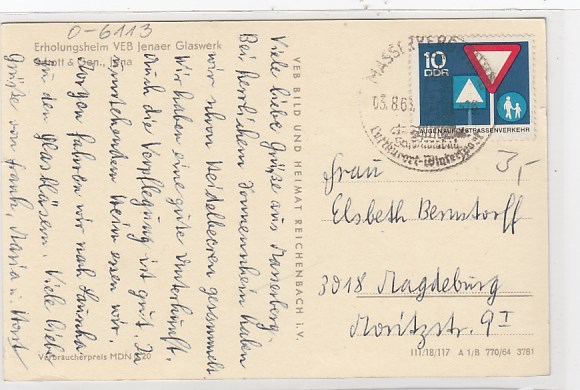 0-6113
Erholungsheim VEB Jenaer Glaswerk
Schott & Gen., Jena
Viele liebe Grüße aus Masserberg.
Bei herrlichem Sonnenschein haben
wir schon Heidelbeeren gesammelt.
Wir haben eine gute Unterkunft.
Auch die Verpflegung ist gut. Im
Heim essen wir.
Morgen fahren wir nach Lauscha
zu den Glasbläsern. Viele liebe
Grüße von Frank, Maria u. Horst
Verbraucherpreis MDN 0,20
VEB BILD UND HEIMAT REICHENBACH i. V.
MASSERBERG
03.8.65
Luftkurort-Wintersport
10
DDR
AUGEN AUF DES STRASSENVERKEHR
3,-
Frau
Elsbeth Berndorff
3018 Magdeburg
Moritzstr. 9 I
III/18/117 A 1/B 770/64 3781